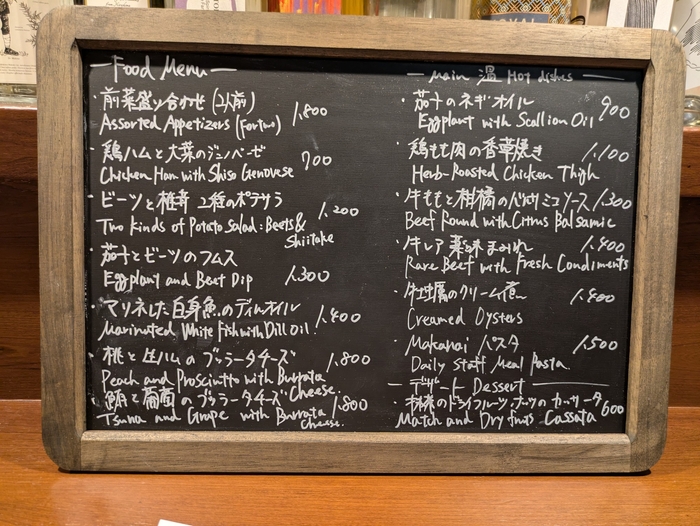 Food Menu
・前菜盛り合わせ (2人前)
Assorted Appetizers (For two) 1,800
・鶏ハムと大葉のジェノベーゼ
Chicken Ham with Shiso Genovese 700
・ビーツと椎茸 2種のポテサラ
Two kinds of Potato Salad: Beets & Shiitake 1,200
・茄子とビーツのフムス
Eggplant and Beet Dip 1,300
・マリネした白身魚のディルオイル
Marinated White Fish with Dill Oil 1,400
・桃と生ハムのブッラータチーズ
Peach and Prosciutto with Burrata Cheese. 1,800
・鮪と葡萄のブッラータチーズ
Tsuna and Grape with Burrata Cheese. 1,800
Main 温 Hot dishes
・茄子のネギオイル 900
Eggplant with Scallion Oil
・鶏もも肉の香草焼き 1,100
Herb-Roasted Chicken Thigh
・牛ももと柑橘のバルサミコソース 1,300
Beef Round with Citrus Balsamic
・牛レア 薬味まみれ 1,400
Rare Beef with Fresh Condiments
・牡蠣のクリーム煮 1,400
Creamed Oysters
・Makanai パスタ 1,500
Daily Staff Meal Pasta.
デザート Dessert
・抹茶のドライフルーツ、ナッツの カッサータ 600
Match and Dry fruits Cassata